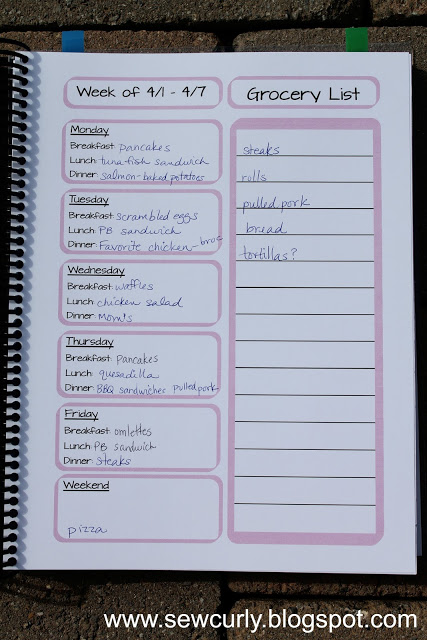 Week of 4/1 - 4/7
Monday
Breakfast: pancakes
Lunch: tuna-fish sandwich
Dinner: salmon-baked potatoes
Tuesday
Breakfast: scrambled eggs
Lunch: PB sandwich
Dinner: Favorite chicken-broc
Wednesday
Breakfast: waffles
Lunch: chicken salad
Dinner: Mom's
Thursday
Breakfast: pancakes
Lunch: quesadilla
Dinner: BBQ sandwiches pulled pork
Friday
Breakfast: omlettes
Lunch: PB sandwich
Dinner: steaks
Weekend
pizza
Grocery List
steaks
rolls
pulled pork
bread
tortillas?
www.sewcurly.blogspot.com